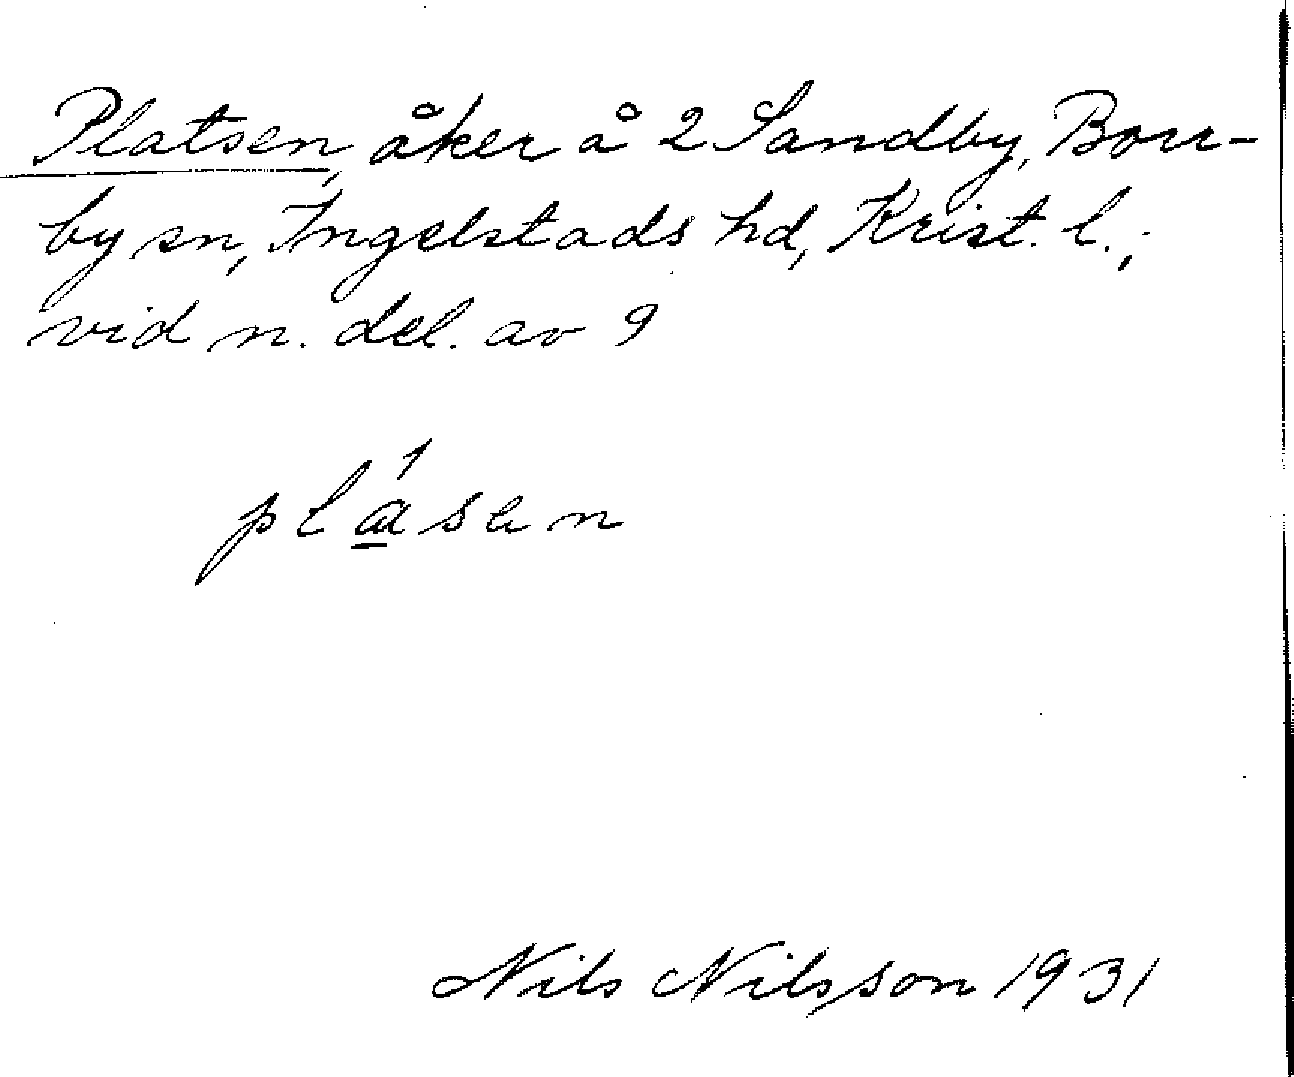 Platsen, åker å 2 Sandby, Borr-
by sn, Ingelstads hd, Krist. l.,
vid n. del. av 9
plásen
Nils Nilsson 1931